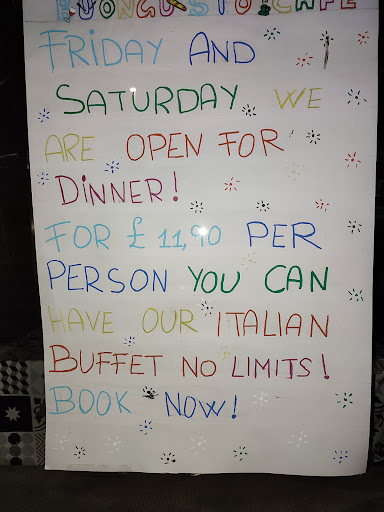 BUONGUSTO! CAFE
FRIDAY AND
SATURDAY WE
ARE OPEN FOR
DINNER!
FOR £ 11,90 PER
PERSON YOU CAN
HAVE OUR ITALIAN
BUFFET NO LIMITS!
BOOK NOW!